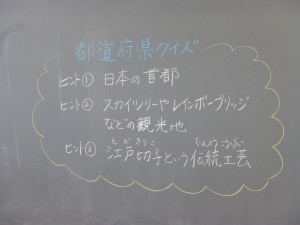 都道府県クイズ
ヒント① 日本の首都
ヒント② スカイツリーやレインボーブリッジ
などの観光地
ヒント③ 江戸切子という伝統工芸
えどきりこ でんとうこうげい